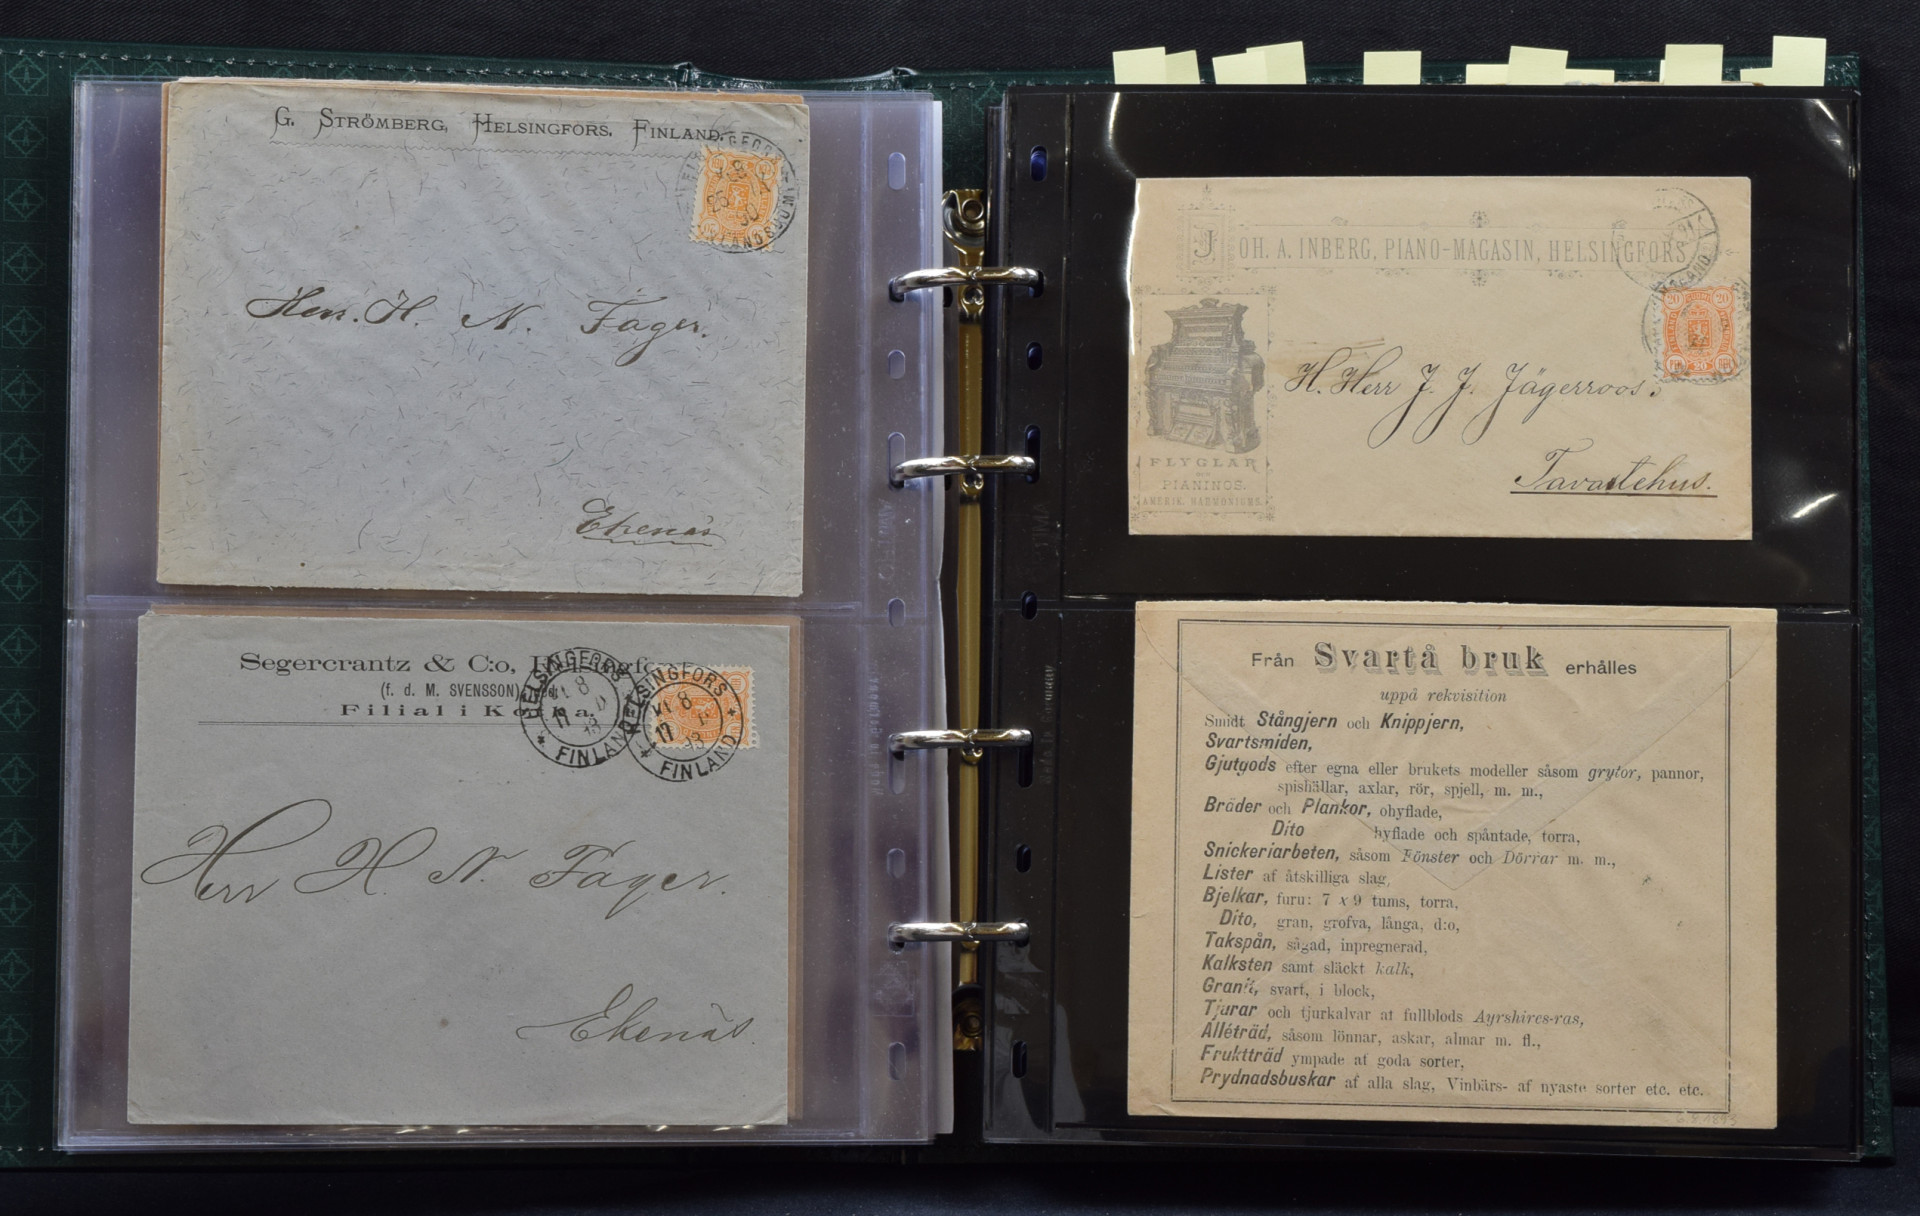 G. STRÖMBERG, HELSINGFORS. FINLAND.
Herr. H. N. Fager.
Ekenäs
Segercrantz & C:o,
(f. d. M. SVENSSON)
Filial i
HELSINGFORS
KL 8
17
FINLAND
HELSINGFORS
KL 8
17
93
FINLAND
Herr H. N. Fager.
Ekenäs.
JOH. A. INBERG, PIANO-MAGASIN, HELSINGFORS
20 20
PEN 20 PEN
H. Herr J. J. Jägerroos.
Tavastehus.
FLYGLAR
OCH
PIANINOS.
AMERIK. HARMONIUMS.
Från Svartå bruk erhålles
uppå rekvisition
Smidt Stångjern och Knippjern,
Svartsmiden,
Gjutgods efter egna eller brukets modeller såsom grytor, pannor,
spishällar, axlar, rör, spjell, m. m.,
Bräder och Plankor, ohyflade,
Dito hyflade och spåntade, torra,
Snickeriarbeten, såsom Fönster och Dörrar m. m.,
Lister af åtskilliga slag,
Bjelkar, furu: 7 x 9 tums, torra,
Dito, gran, grofva, långa, d:o,
Takspån, sågad, inpregnerad,
Kalksten samt släckt kalk,
Granit, svart, i block,
Tjurar och tjurkalvar af fullblods Ayrshires-ras,
Alléträd, såsom lönnar, askar, almar m. fl.,
Fruktträd ympade af goda sorter,
Prydnadsbuskar af alla slag, Vinbärs- af nyaste sorter etc. etc.